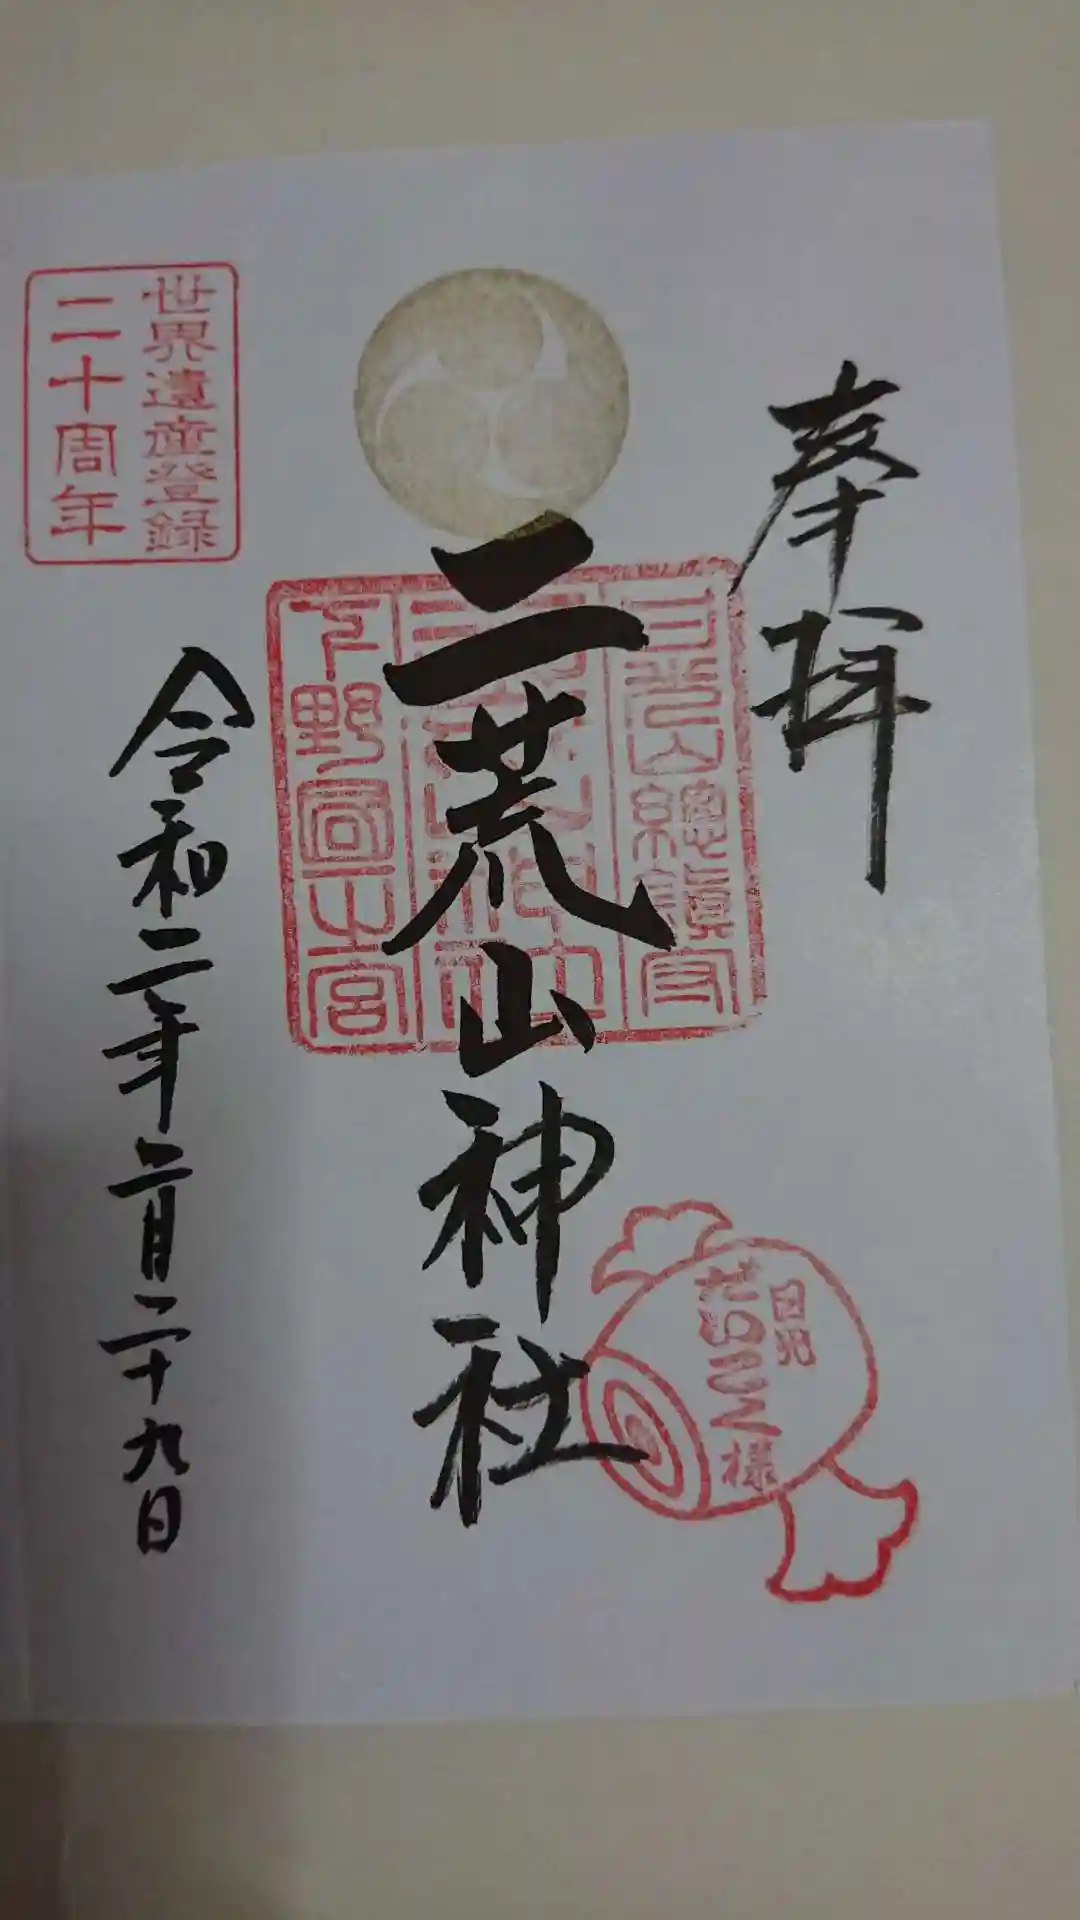 奉拝
日光山總鎮守
二荒山神社
下野國一之宮
二荒山神社
日光
だいこく様
世界遺産登録
二十周年
令和二年二月二十九日